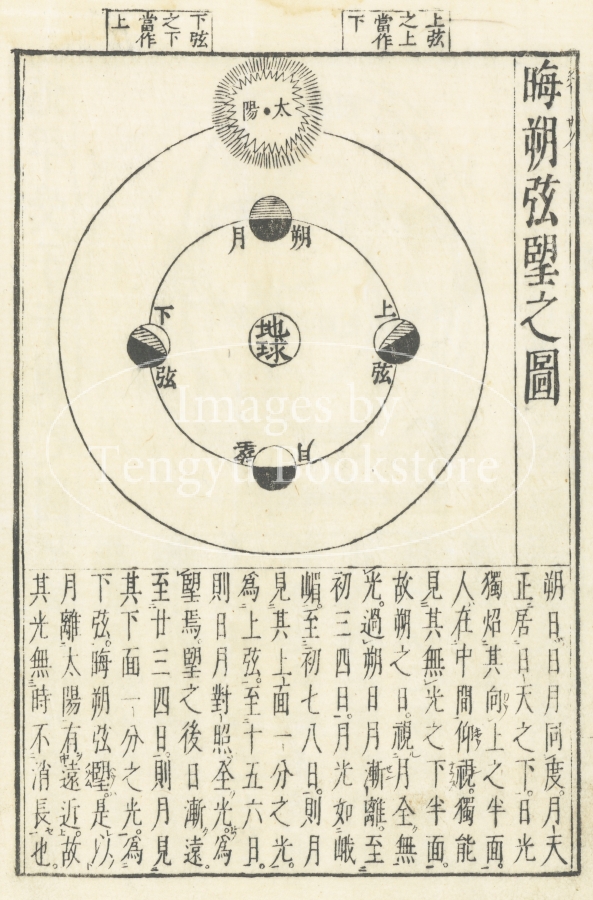 上弦
之上
當作
下
下弦
之下
當作
上
晦朔弦朢之圖
太陽
朔月
上弦
地球
下弦
朢月
朔日日月同度。月天
正居日天之下。日光
獨炤其向上之半面。
人在中間仰視。獨能
見其無光之下半面。
故朔之日。視月全無
光。過朔日月漸離。至
初三四日。月光如峨
嵋。至初七八日。則月
見其上面一分之光。
爲上弦。至十五六日。
則日月對照全光。爲
朢焉。朢之後日漸遠。
至廿三四日。則月見
其下面一分之光。爲
下弦。晦朔弦朢。是以
月離太陽有遠近。故
其光無時不消長也。
Images by
Tengyu Bookstore